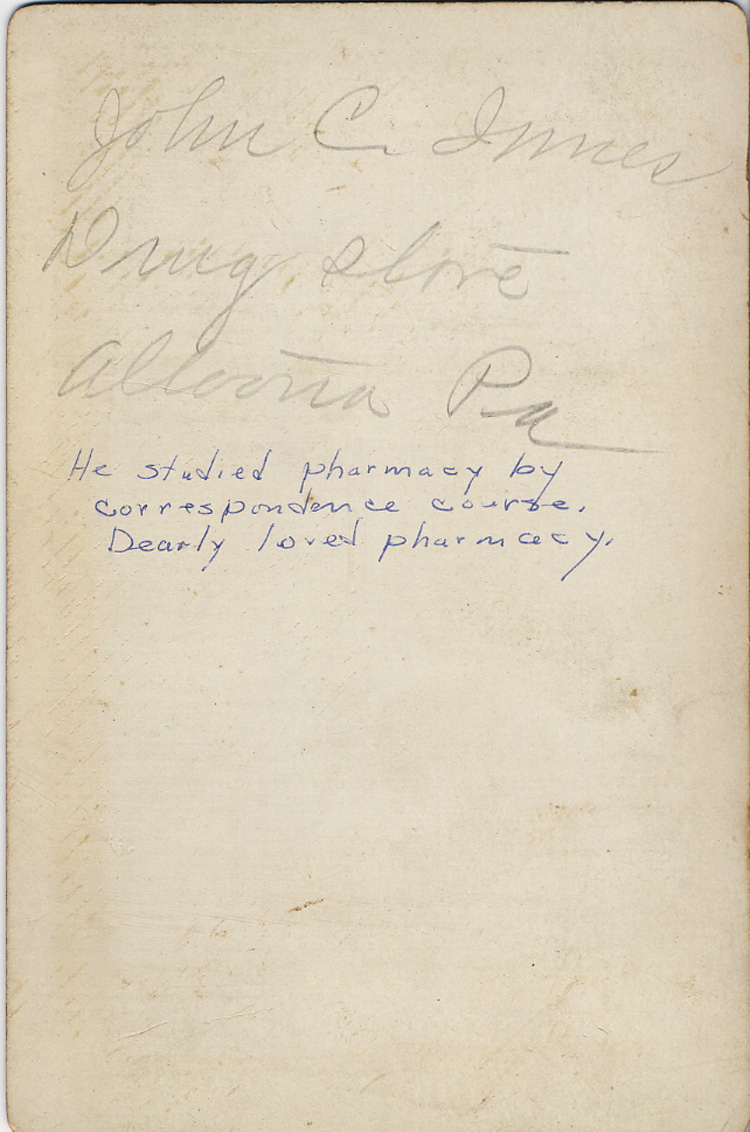 John C. Innes
Drug store
Altoona Pa
He studied pharmacy by
correspondence course.
Dearly loved pharmacy.